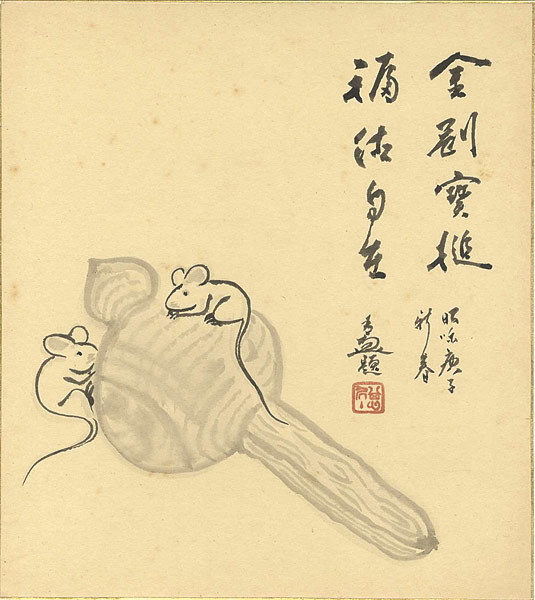 金剛寶槌
福祐自在
昭咊庚子
新春
題